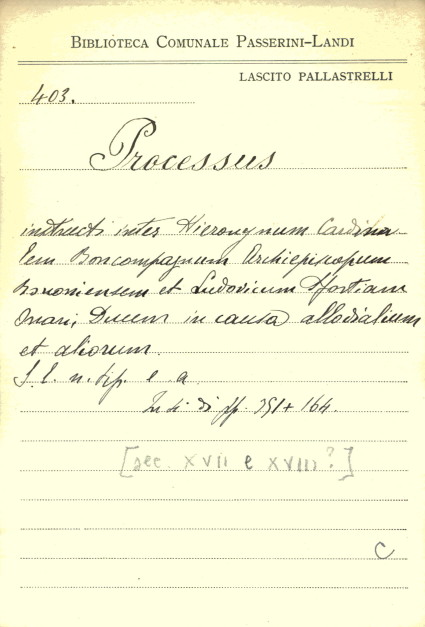 BIBLIOTECA COMUNALE PASSERINI-LANDI
LASCITO PALLASTRELLI
403.
Processus
instructi inter Hieronymum Cardina-
lem Boncompagnum Archiepiscopum
Bononiensem et Ludovicum Sfortiam
Ducem in causa allodialium
et aliorum.
S. l. n. tip. e a
In di pp. 351 + 164.
[sec. XVII e XVIII?]
C